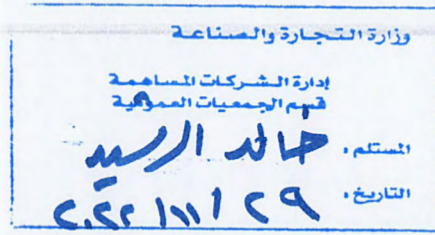 وزارة التجارة والصناعة
إدارة الشركات المساهمة
قسم الجمعيات العمومية
المستلم: خالد الرشيد
التاريخ: ٢٩ /١١/ ٢٠٢٢